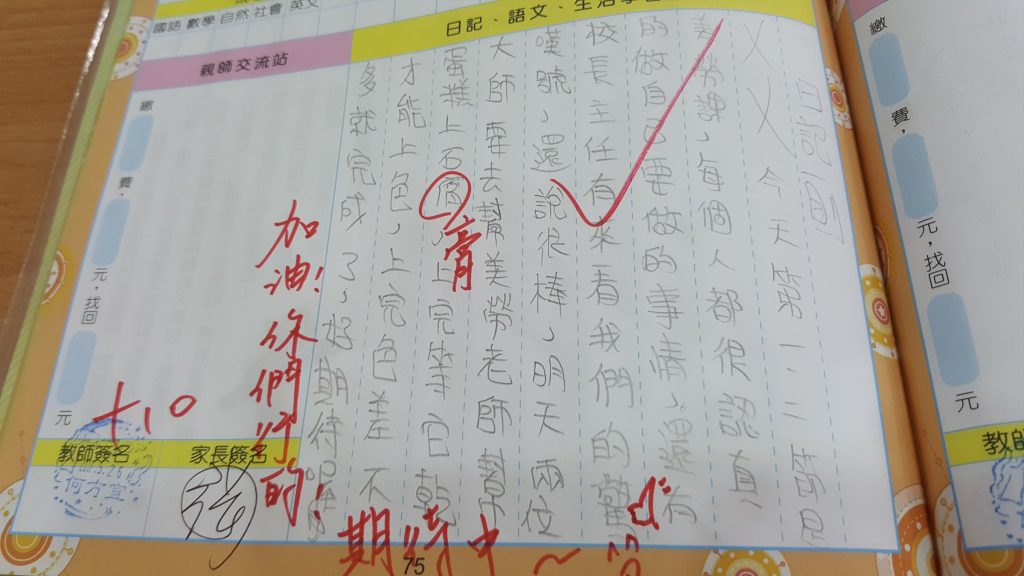 國語 數學 自然 社會 英文
日記、語文、生活學
日記一則
今天第一、二節是
美勞課，每個人都很認真
的做自己要做的事情，還有
校長主任有來看我們的
嘆號，還說很棒，明天兩位
大師要去幫美勞老師
蛋糕上石膏，上完等它乾
才能上色，上完色差不
多就完成了，好期待
膏
加油!你們行的!
期待中~
+10
親師交流站
繳
費，
元，找回
元
教師簽名
家長簽名
何方宜
75
繳
費，
元，找回
元
教師